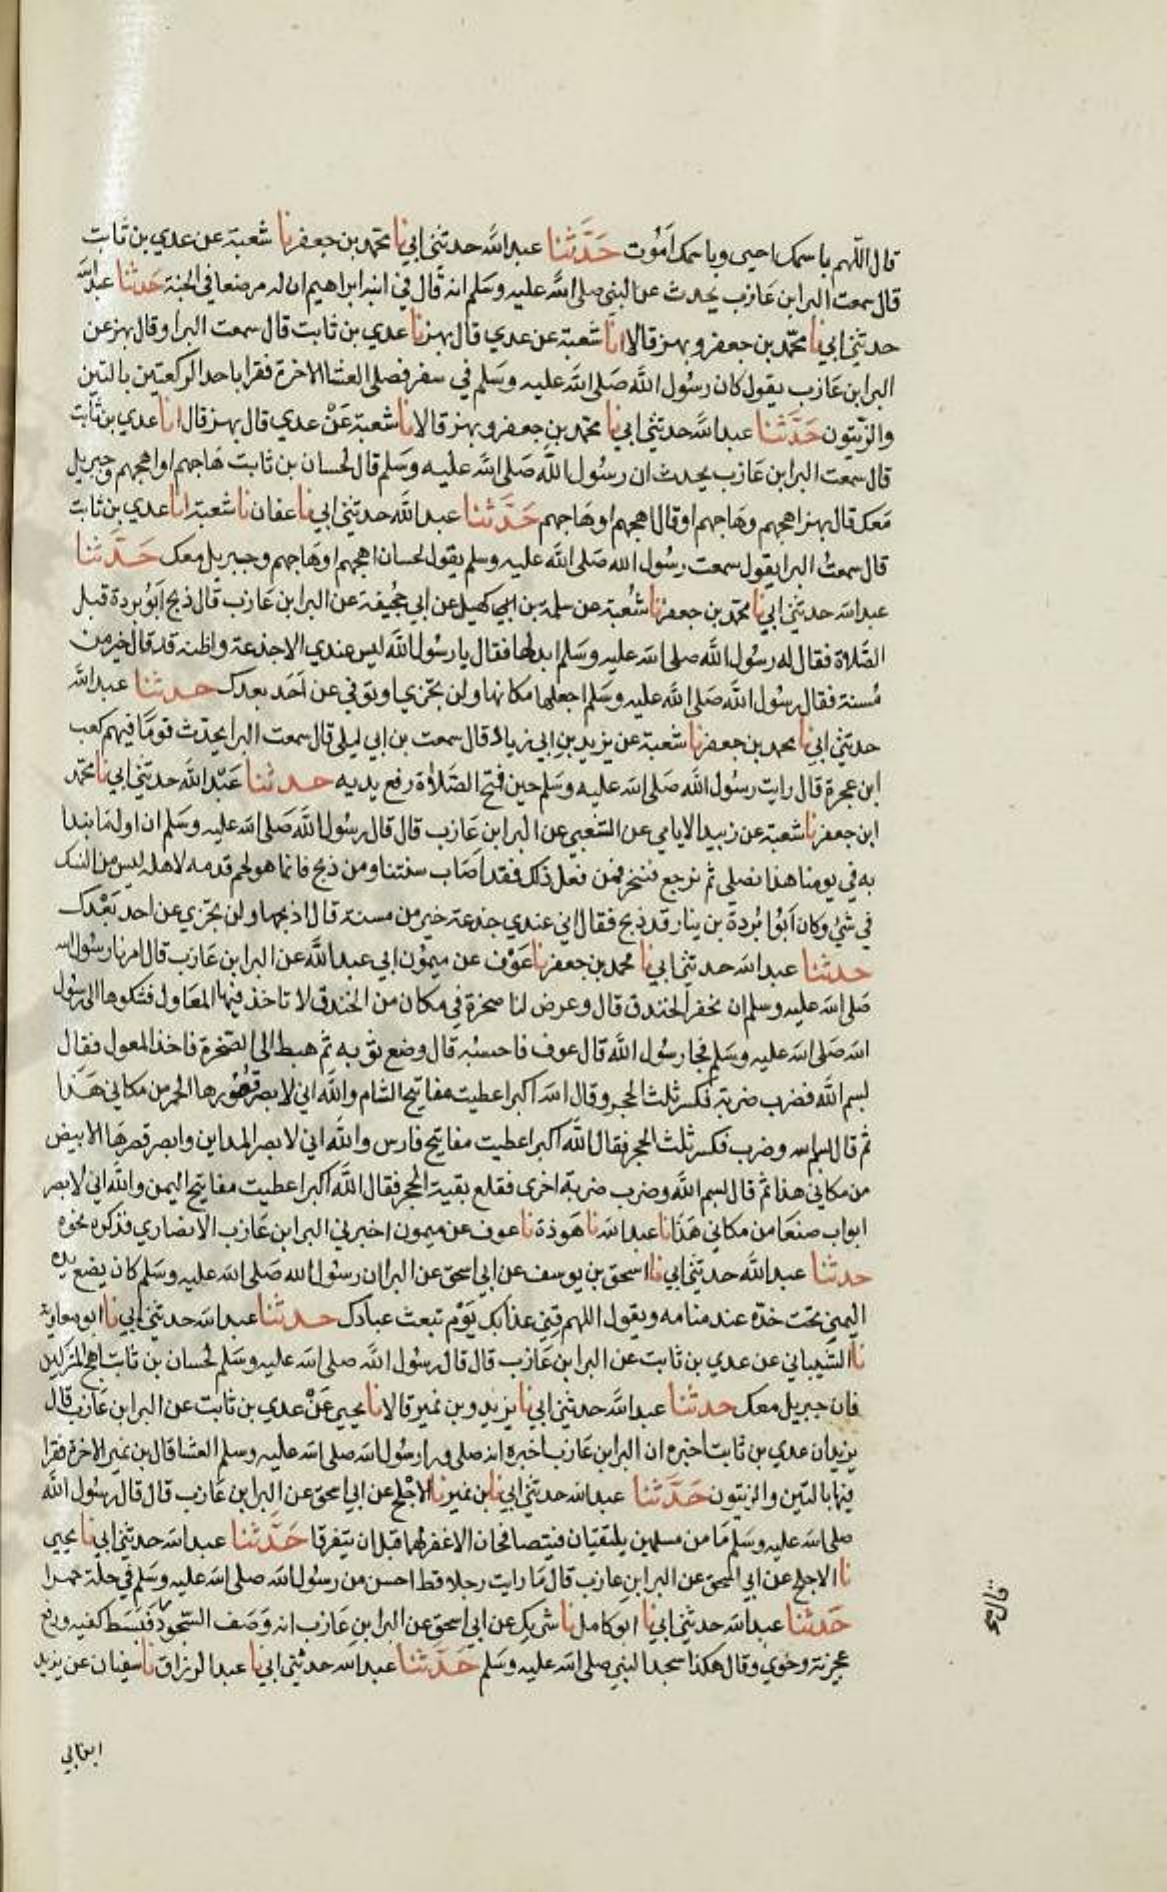 قال اللهم باسمك احيى وباسمك اَمُوت حَدَّثنا عبد الله حدثنى ابي نا محمد بن جعفر نا شعبة عن عدي بن ثابت
قال سمعت البرا ابن عَازب يحدث عن النبي صلى الله عليه وسَلم انه قال في ابنه ابراهيم ان له مرضعا في الجنة حَدثنا عبد الله
حدثنى ابي نا محمّد بن جعفر وبهز قالا انا شعبة عن عدي قال بهز نا عدي بن ثابت قال سمعت البرا وقال بهز عن
البرا ابن عَازب يقول كان رسُول الله صَلى الله عليه وسَلم في سفر فصلى العشا الاخرة فقرا باحدا الركعتين بالتين
والزّيتون حَدَّثنا عبد الله حدثنى ابي نا محمد بن جعفر وبهز قالا نا شعبة عَنْ عدي قال بهز قال انا عدي بن ثابت
قال سمعت البرا ابن عَازب يحدث ان رسُول الله صَلى الله عليه وسَلم قال لحسان بن ثابت هَاجهم او اهجهم وجبريل
مَعك قال بهز اهجهم وهَاجهم او قال اهجهم او هَاجهم حَدَّثنا عبد الله حدثنى ابي نا عفان نا شعبة انا عدي بن ثابت
قال سمعتُ البرا يقول سمعت رسُول الله صَلى الله عليه وسلم يقول لحسان اهجهم او هَاجهم وجبريل معك حَدَّثنا
عبد الله حدثنى ابي نا محمّد بن جعفر نا شعْبة عن سلمة بن كهيل عن ابي جحيفة عن البرا ابن عَازب قال ذبح ابُو بردة قبل
الصَّلاة فقال له رسُول الله صلى الله عليه وسَلم ابدلها فقال يا رسُول الله ليس عندي الا جذعة واظنه قد قال خير من
مُسنة فقال رسُول الله صَلى الله عليه وسَلم اجعلها مكانها ولن تجزي او توفي عن اَحَد بعدك حدثنا عبد الله
حدثنى ابي نا محمد بن جعفر نا شعبة عن يزيد بن ابي زياد قال سمعت بن ابي ليلى قال سمعت البرا يحدّث قومَّا فيهم كعب
ابن عجرة قال رايت رسُول الله صَلى الله عليه وسَلم حين فتح الصَّلاة رفع يديه حدثنا عَبْد الله حدثنى ابي نا محمّد
ابن جعفر نا شعبة عن زبيد الايامي عن الشعبي عن البرا ابن عَازب قال قال رسُول الله صَلى الله عليه وسَلم ان اول مَا نبدا
به في يومنا هذا نصلى ثم نرجع فننحر فمن فعل ذلك فقد اصَاب سنتنا ومن ذبح فانما هو لحم قدمه لاهله ليس من النسك
في شئ وكان اَبُوا بُردة بن نيار قد ذبح فقال اني عندي جذعة خير من مسنة قال اذبحها ولن تجزي عن احد بَعْدك
حدثنا عبد الله حدثنى ابي نا محمد بن جعفر نا عَوْف عن ميمُون ابي عبد الله عن البرا ابن عَازب قال امرنا رسُول الله
صَلى الله عليه وسلم ان نحفر الخندق قال وعرض لنا صخرة في مكان من الخندق لا تاخذ فيها المعَاول فشكوها الى رسُول
الله صَلى الله عليه وسَلم فجا رسُول الله قال عوف فاحسبه قال وضع ثوبه ثم هبط الى الصّخرة فاخذ المعول فقال
بسم الله فضرب ضربة فكسر ثلث الحجر وقال الله اكبر اعطيت مفاتيح الشام والله اني لابصر قصُورها الحمر من مكاني هَذا
ثم قال بسم الله وضرب فكسر ثلث الحجر فقال الله اكبر اعطيت مفاتيح فارس والله اني لابصر المداين وابصر قصرهَا الابيض
من مكاني هذا ثم قال بسم الله وضرب ضربة اخرى فقلع بقية الحجر فقال الله اكبر اعطيت مفاتيح اليمن والله اني لابصر
ابواب صنعَا من مكاني هَذا نا عبد الله نا هَوذة نا عوف عن ميمون اخبرني البرا ابن عَازب الانصاري فذكره نحوه
حدثنا عبد الله حدثنى ابي نا اسحق بن يوسف عن ابي اسحق عن البرا ان رسُول الله صَلى الله عليه وسَلم كان يضع يده
اليمنى تحت خدّه عند منامه ويقول اللهم قِنِي عذابك يَوْم تبعث عبادك حدثنا عبد الله حدثنى ابي نا ابو معاوية
نا الشَّيباني عن عدي بن ثابت عن البرا ابن عَازب قال قال رسُول الله صلى الله عليه وسَلم لحسان بن ثابت اهج المشركين
فان جبريل معك حدثنا عبد الله حدثنى ابي نا يزيد وبن نمير قالا نا يحيى عَنْ عدي بن ثابت عن البرا ابن عَازب قال
يزيد ان عدي بن ثابت اخبره ان البرا ابن عَازب اخبره انه صلى ورا رسُول الله صلى الله عليه وسلم العشا قال بن نمير الاخرة فقرا
فيها بالتين والزيتون حَدَّثنا عبد الله حدثنى ابي نا بن نمير نا الاجْلح عن ابي اسحق عن البرا ابن عَازب قال قال رسُول الله
صلى الله عليه وسَلم مَا من مسلمين يلتقيان فيتصافحان الا غفر لهما قبل ان يتفرقا حَدَّثنا عبد الله حدثنى ابي نا يحيى
نا الاجلح عن ابي اسحق عن البرا ابن عازب قال مَا رايت رجلا قط احسن من رسُول الله صلى الله عليه وسَلم في حلة حمرا
حَدثنا عبد الله حدثنى ابي نا ابو كامل نا شريك عن ابي اسحق عن البرا ابن عَازب انه وَصَف السّجود فَبَسَط كفيه ورفع
عجيزته وخوي وقال هكذا سجد النبي صلى الله عليه وسلم حَدَّثنا عبد الله حدثنى ابي نا عبد الرزاق نا سفيان عن يزيد
ابن ابي